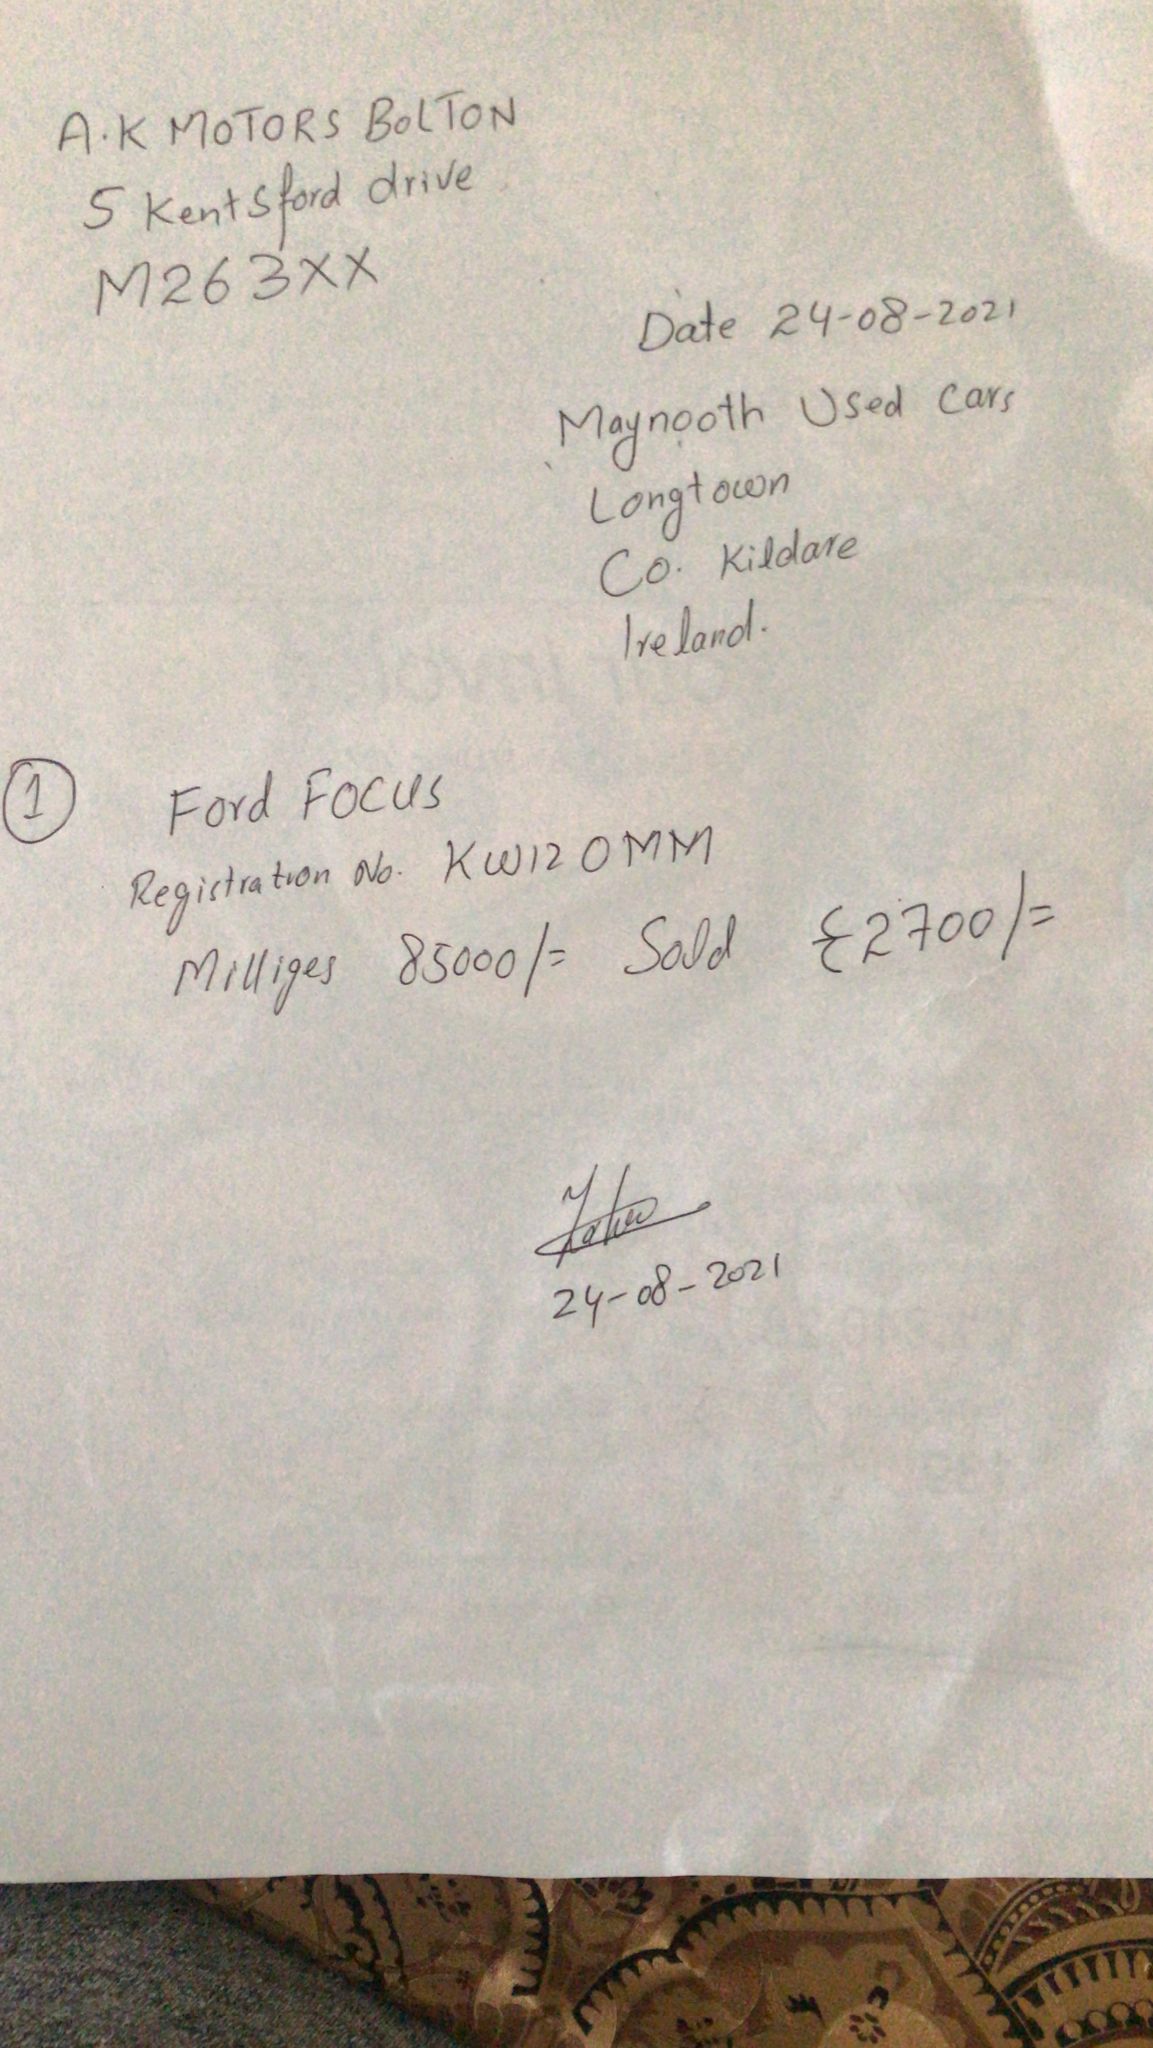 A.K MOTORS BOLTON
5 Kentsford drive
M263XX
Date 24-08-2021
Maynooth Used Cars
Longtown
Co. Kildare
Ireland.
1 Ford FOCUS
Registration No. KW12 OMM
Milliges 85000/= Sold £2700/=
24-08-2021